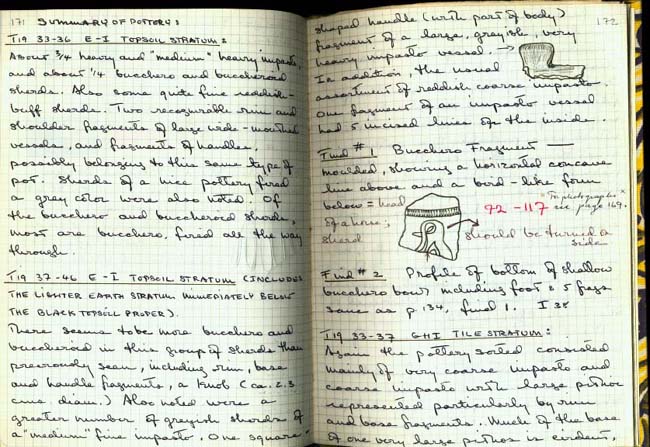 171 SUMMARY OF POTTERY:
T19 33-36 E-I TOPSOIL STRATUM:
About 3/4 heavy and "medium" heavy impasto,
and about 1/4 bucchero and buccheroid
sherds. Also some quite fine reddish-
buff sherds. Two recognizable rim and
shoulder fragments of large wide-mouthed
vessels, and fragments of handles,
possibly belonging to this same type of
pot. Sherds of a nice pottery fired
a grey color were also noted. Of
the bucchero and buccheroid sherds,
most are bucchero, fired all the way
through.
T19 37-46 E-I TOPSOIL STRATUM (INCLUDES
THE LIGHTER EARTH STRATUM IMMEDIATELY BELOW
THE BLACK TOPSOIL PROPER).
There seems to be more bucchero and
buccheroid in this group of sherds than
previously seen, including rim, base
and handle fragments, a knob (ca. 2.3
cm. diam.) Also noted were a
greater number of greyish sherds of
a "medium" fine impasto. One square-
172
shaped handle (with part of body)
fragment of a large, greyish, very
heavy impasto vessel. →
In addition, the usual
assortment of reddish coarse impasto.
One fragment of an impasto vessel
had 5 incised lines on the inside.
Find #1 Bucchero Fragment —
moulded, showing a horizontal concave
line above and a bird-like form
below = head
of a horse;
sherd
72-117
*In photographs
see page 169.
should be turned on
side
Find #2 Profile of bottom of shallow
bucchero bowl including foot & 5 frags
same as p 134, find 1. I 38
T19 33-37 GHI TILE STRATUM:
Again the pottery sorted consisted
mainly of very coarse impasto and
coarse impasto with large pithoi
represented particularly by rim
and base fragments. Much of the base
of one very large pithos is evident,